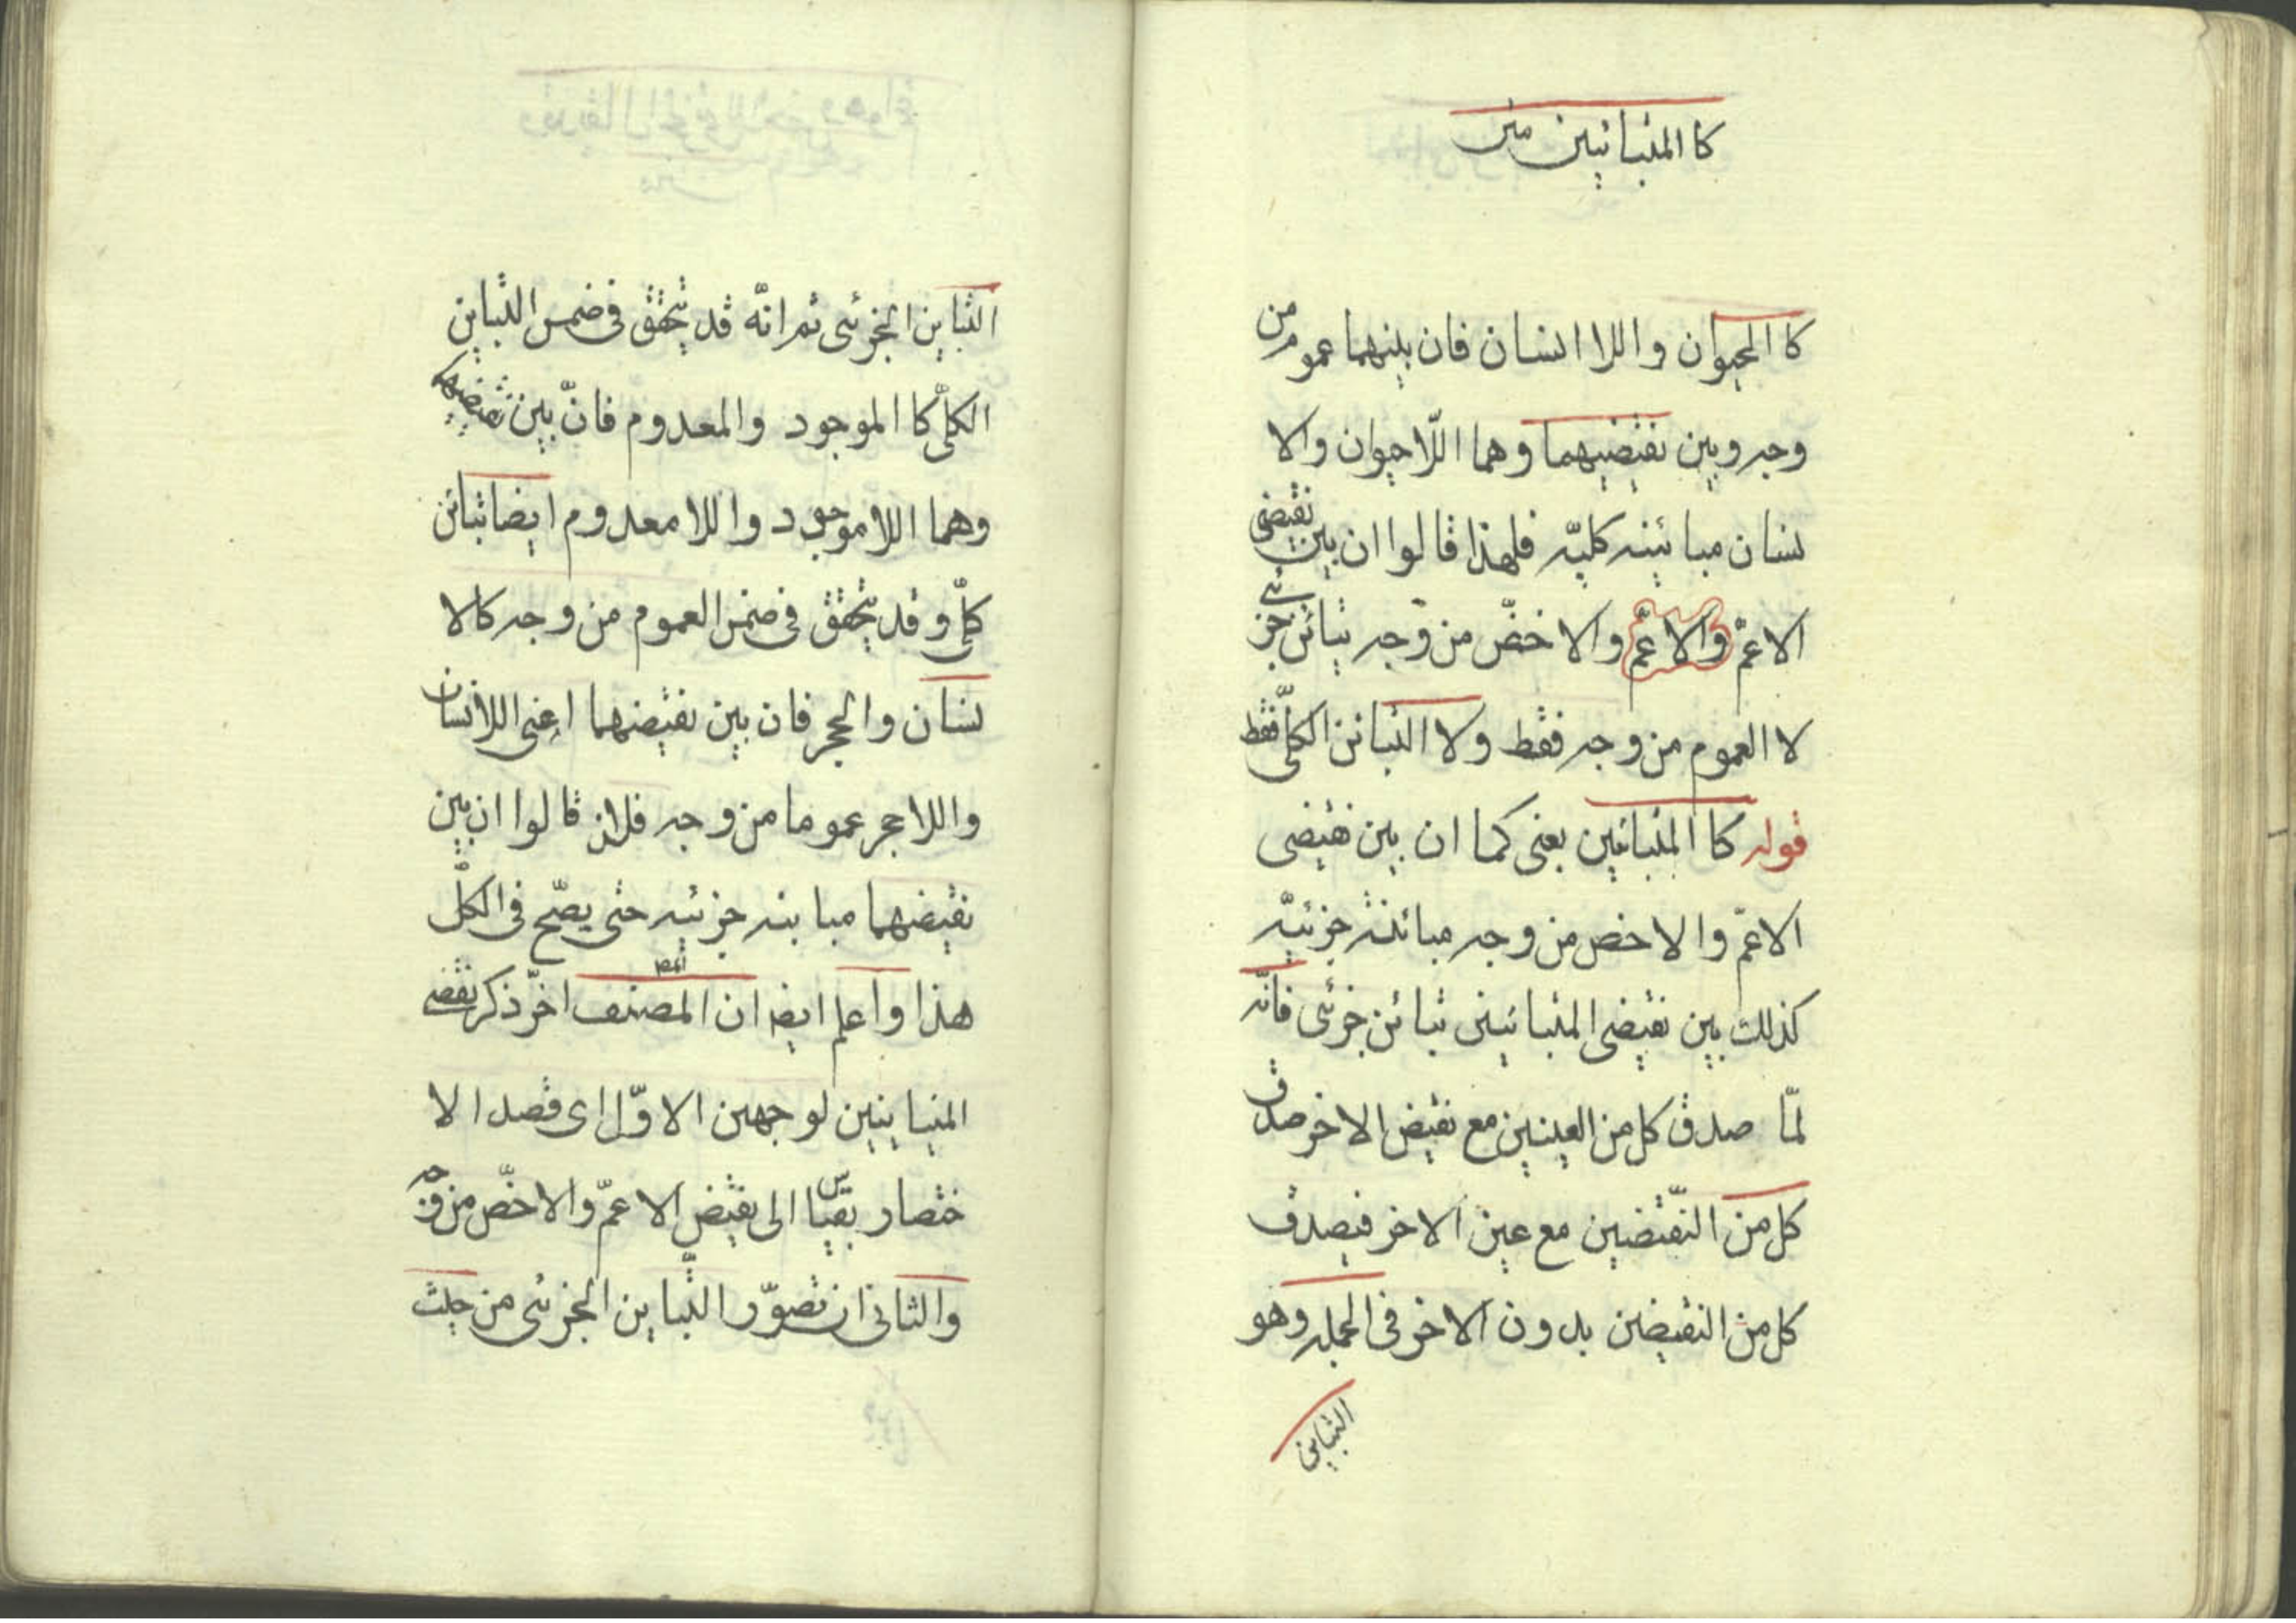 كا المتباينين متن
كا الحيوان واللا انسان فان بينهما عموم من
وجه وبين نقيضيهما وهما اللّاحيوان والا
نسان مبائينه كليّه فلهذا قالوا ان بين نقيضى
الاعمّ والاعمّ والاخصّ من وجه تبائن جزئى
لا العموم من وجه فقط ولا التبائن الكلّى فقط
قوله كا المتبائين يعنى كما ان بين نقيضى
الاعمّ والاخص من وجه مبائنة جزئيّه
كذلك بين نقيضى المتبائينين تبائن جزئى فانّه
لمّا صدق كل من العينين مع نقيض الاخر صدق
كل من النّقيضين مع عين الاخر فيصدق
كل من النقيضين بدون الاخر فى الجمله وهو
التباين
التباين الجزئى ثم انّه قد يتحقق فى ضمن التباين
الكلّى كا الموجود والمعدوم فانّ بين نقيضيهما
وهما اللا موجود واللا معدوم ايضا تبائن
كلّى وقد يتحقق فى ضمن العموم من وجه كالا
نسان والحجر فان بين نقيضهما اعنى اللاانسان
واللا حجر عموما من وجه فلذا قالوا ان بين
نقيضهما مباينه جزئيه حتى يصّح فى الكلّ
هذا واعلم ايضا ان المصنف اخّر ذكر نقيضى
المتباينين لوجهين الاوّل اى قصد الا
ختصار بقيّاس الى نقيض الاعمّ والاخصّ من وجه
والثانى ان تصوّر التّباين الجزئى من حيث